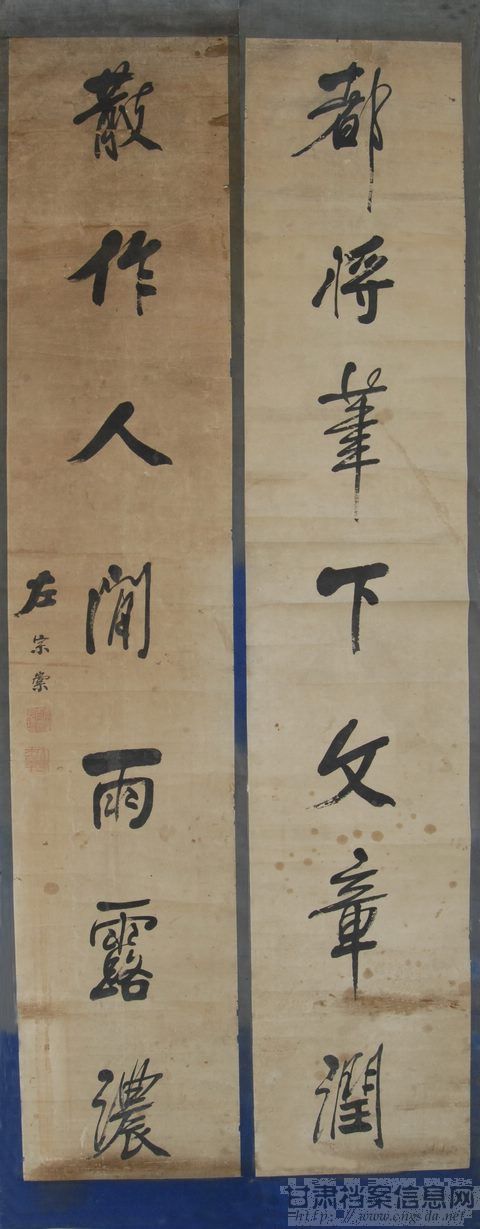 都將筆下文章潤
散作人間雨露濃
左宗棠
甘肃档案信息网
http://www.cngsda.net